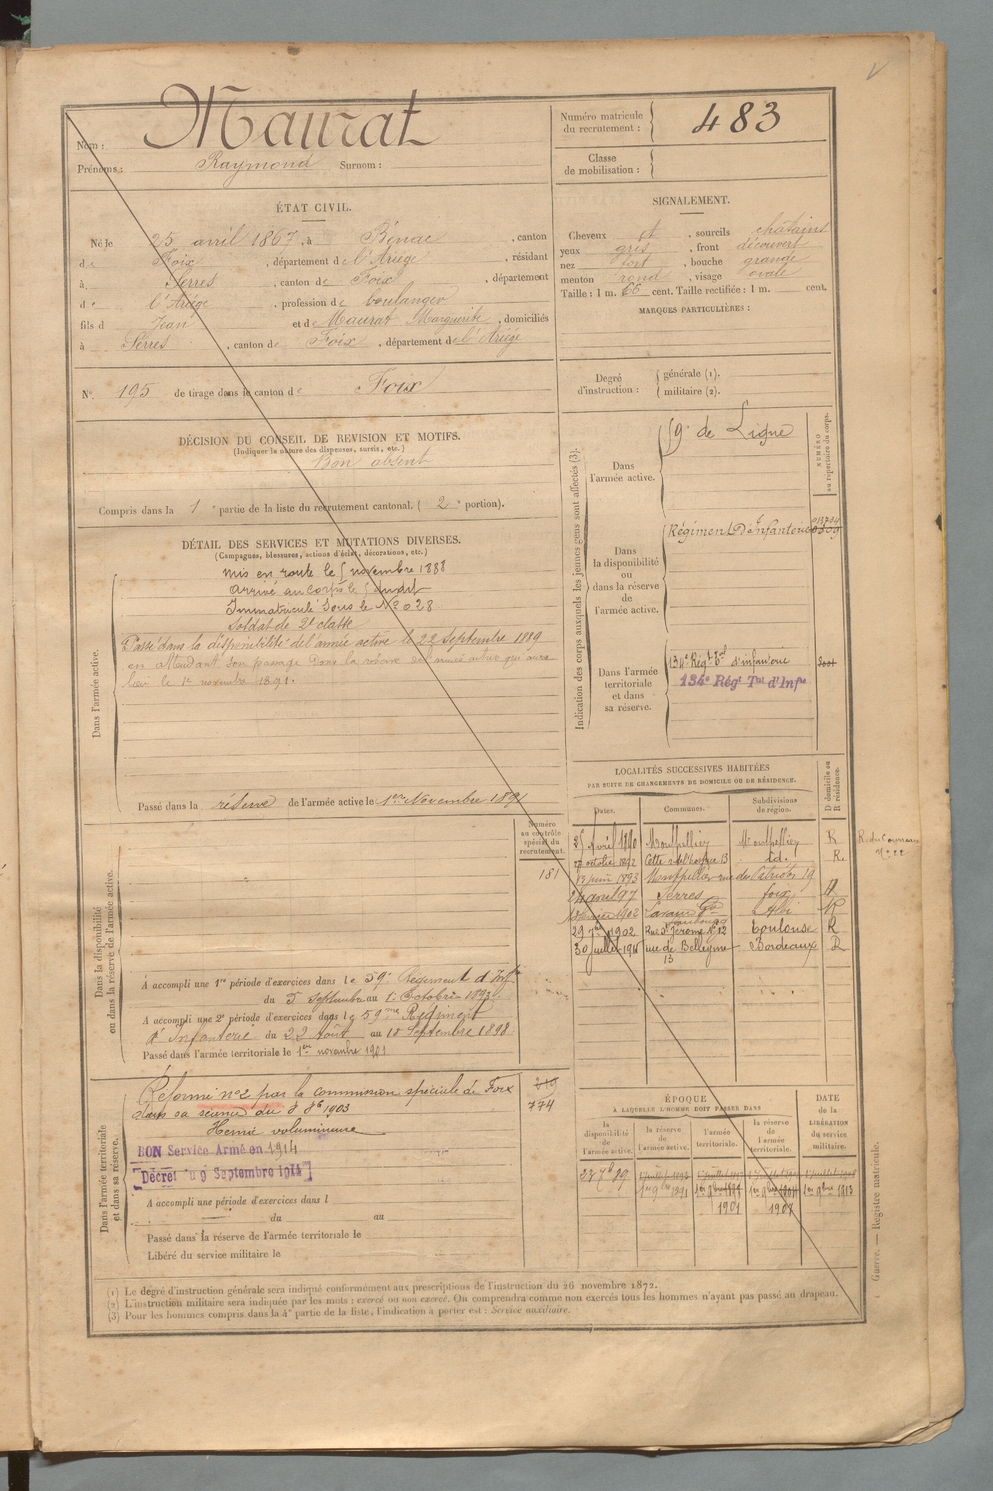 Nom : Maurat
Prénoms : Raymond Surnom :
Numéro matricule du recrutement : 483
Classe de mobilisation :
ÉTAT CIVIL.
Né le 25 avril 1867, à Bénac, canton
de Foix, département de l'Ariège, résidant
à Serres, canton de Foix, département
d e l'Ariège, profession de boulanger
fils d Jean et de Maurat Marguerite, domiciliés
à Serres, canton de Foix, département de l'Ariège
N° 195 de tirage dans le canton de Foix
DÉCISION DU CONSEIL DE REVISION ET MOTIFS.
(Indiquer la nature des dispenses, sursis, etc.)
Bon absent
Compris dans la 1e partie de la liste du recrutement cantonal. ( 2e portion).
SIGNALEMENT.
Cheveux et, sourcils chatains
yeux gris, front découvert
nez fort, bouche grande
menton rond, visage ovale
Taille : 1 m. 66 cent. Taille rectifiée : 1 m. cent.
MARQUES PARTICULIÈRES :
Degré d'instruction : générale (1).
militaire (2).
DÉTAIL DES SERVICES ET MUTATIONS DIVERSES.
(Campagnes, blessures, actions d'éclat, décorations, etc.)
Dans l'armée active.
Mis en route le 5 novembre 1888
Arrivé au corps le 5 dudit
Immatriculé sous le N° 028
Soldat de 2e classe
Passé dans la disponibilité de l'armée active le 22 Septembre 1889
en attendant son passage dans la réserve de l'armée active qui aura
lieu le 1er novembre 1891.
Passé dans la réserve de l'armée active le 1er Novembre 1891
Indication des corps auxquels les jeunes gens sont affectés (3).
NUMÉRO au répertoire du corps.
Dans l'armée active.
59e de Ligne
Dans la disponibilité ou dans la réserve de l'armée active.
Régiment d'Infanterie
Dans l'armée territoriale et dans sa réserve.
134e Régt Tal d'infanterie
134e Régt Tal d'Infie
LOCALITÉS SUCCESSIVES HABITÉES
PAR SUITE DE CHANGEMENTS DE DOMICILE OU DE RÉSIDENCE.
Dates. Communes. Subdivisions de région. D domicile ou R résidence.
25 Avril 1890 Montpellier Montpellier R
27 octobre 1892 Cette 13 id. R.
13 juin 1893 Montpellier rue des Patriotes 19
24 avril 97 Serres foix D
1902 Lavaur Albi R
29 7bre 1902 Rue St Jérome N° 12 Toulouse R
30 juillet 1911 rue de Belleyme 13 Bordeaux R
Numéro au contrôle spécial du recrutement.
181
Dans la disponibilité ou dans la réserve de l'armée active.
A accompli une 1re période d'exercices dans le 59e Régiment d'Infie
du 5 Septembre au 1er Octobre 1893.
A accompli une 2e période d'exercices dans le 59me Régiment
d'Infanterie du 22 Août au 18 Septembre 1898
Passé dans l'armée territoriale le 1er novembre 1901
Dans l'armée territoriale et dans sa réserve.
Réformé n°2 par la commission spéciale de Foix
dans sa séance du 8 8bre 1903
Hernie volumineuse
219
774
BON Service Armé en 1914
Décret du 9 Septembre 1914
A accompli une période d'exercices dans l
du au
Passé dans la réserve de l'armée territoriale le
Libéré du service militaire le
ÉPOQUE
À LAQUELLE L'HOMME DOIT PASSER DANS
la disponibilité de l'armée active. la réserve de l'armée active. l'armée territoriale. la réserve de l'armée territoriale.
DATE de la LIBÉRATION du service militaire.
22 7bre 89
1er 9bre 1891
1901
1907
1er 9bre 1913
(1) Le degré d'instruction générale sera indiqué conformément aux prescriptions de l'instruction du 26 novembre 1872.
(2) L'instruction militaire sera indiquée par les mots : exercé ou non exercé. On comprendra comme non exercés tous les hommes n'ayant pas passé au drapeau.
(3) Pour les hommes compris dans la 4e partie de la liste, l'indication à porter est : Service auxiliaire.
Guerre. — Registre matricule.